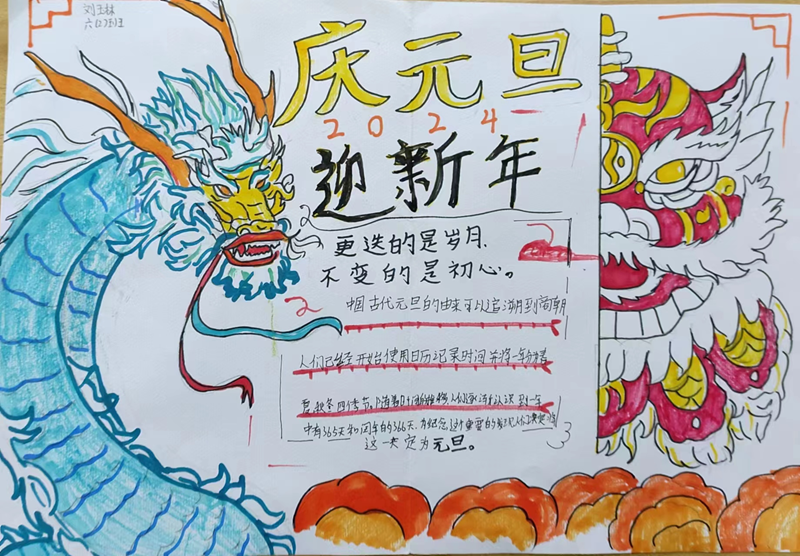 刘玉林
六(2)班
庆元旦
2024
迎新年
更迭的是岁月
不变的是初心。
中国古代元旦的由来可以追溯到商朝
人们已经开始使用日历记录时间并将一年分为春
夏秋冬四个季节,随着时间的推移人们逐渐认识到一年
中有365天和闰年的366天.为纪念这个重要的发现人们决定将
这一天定为元旦。